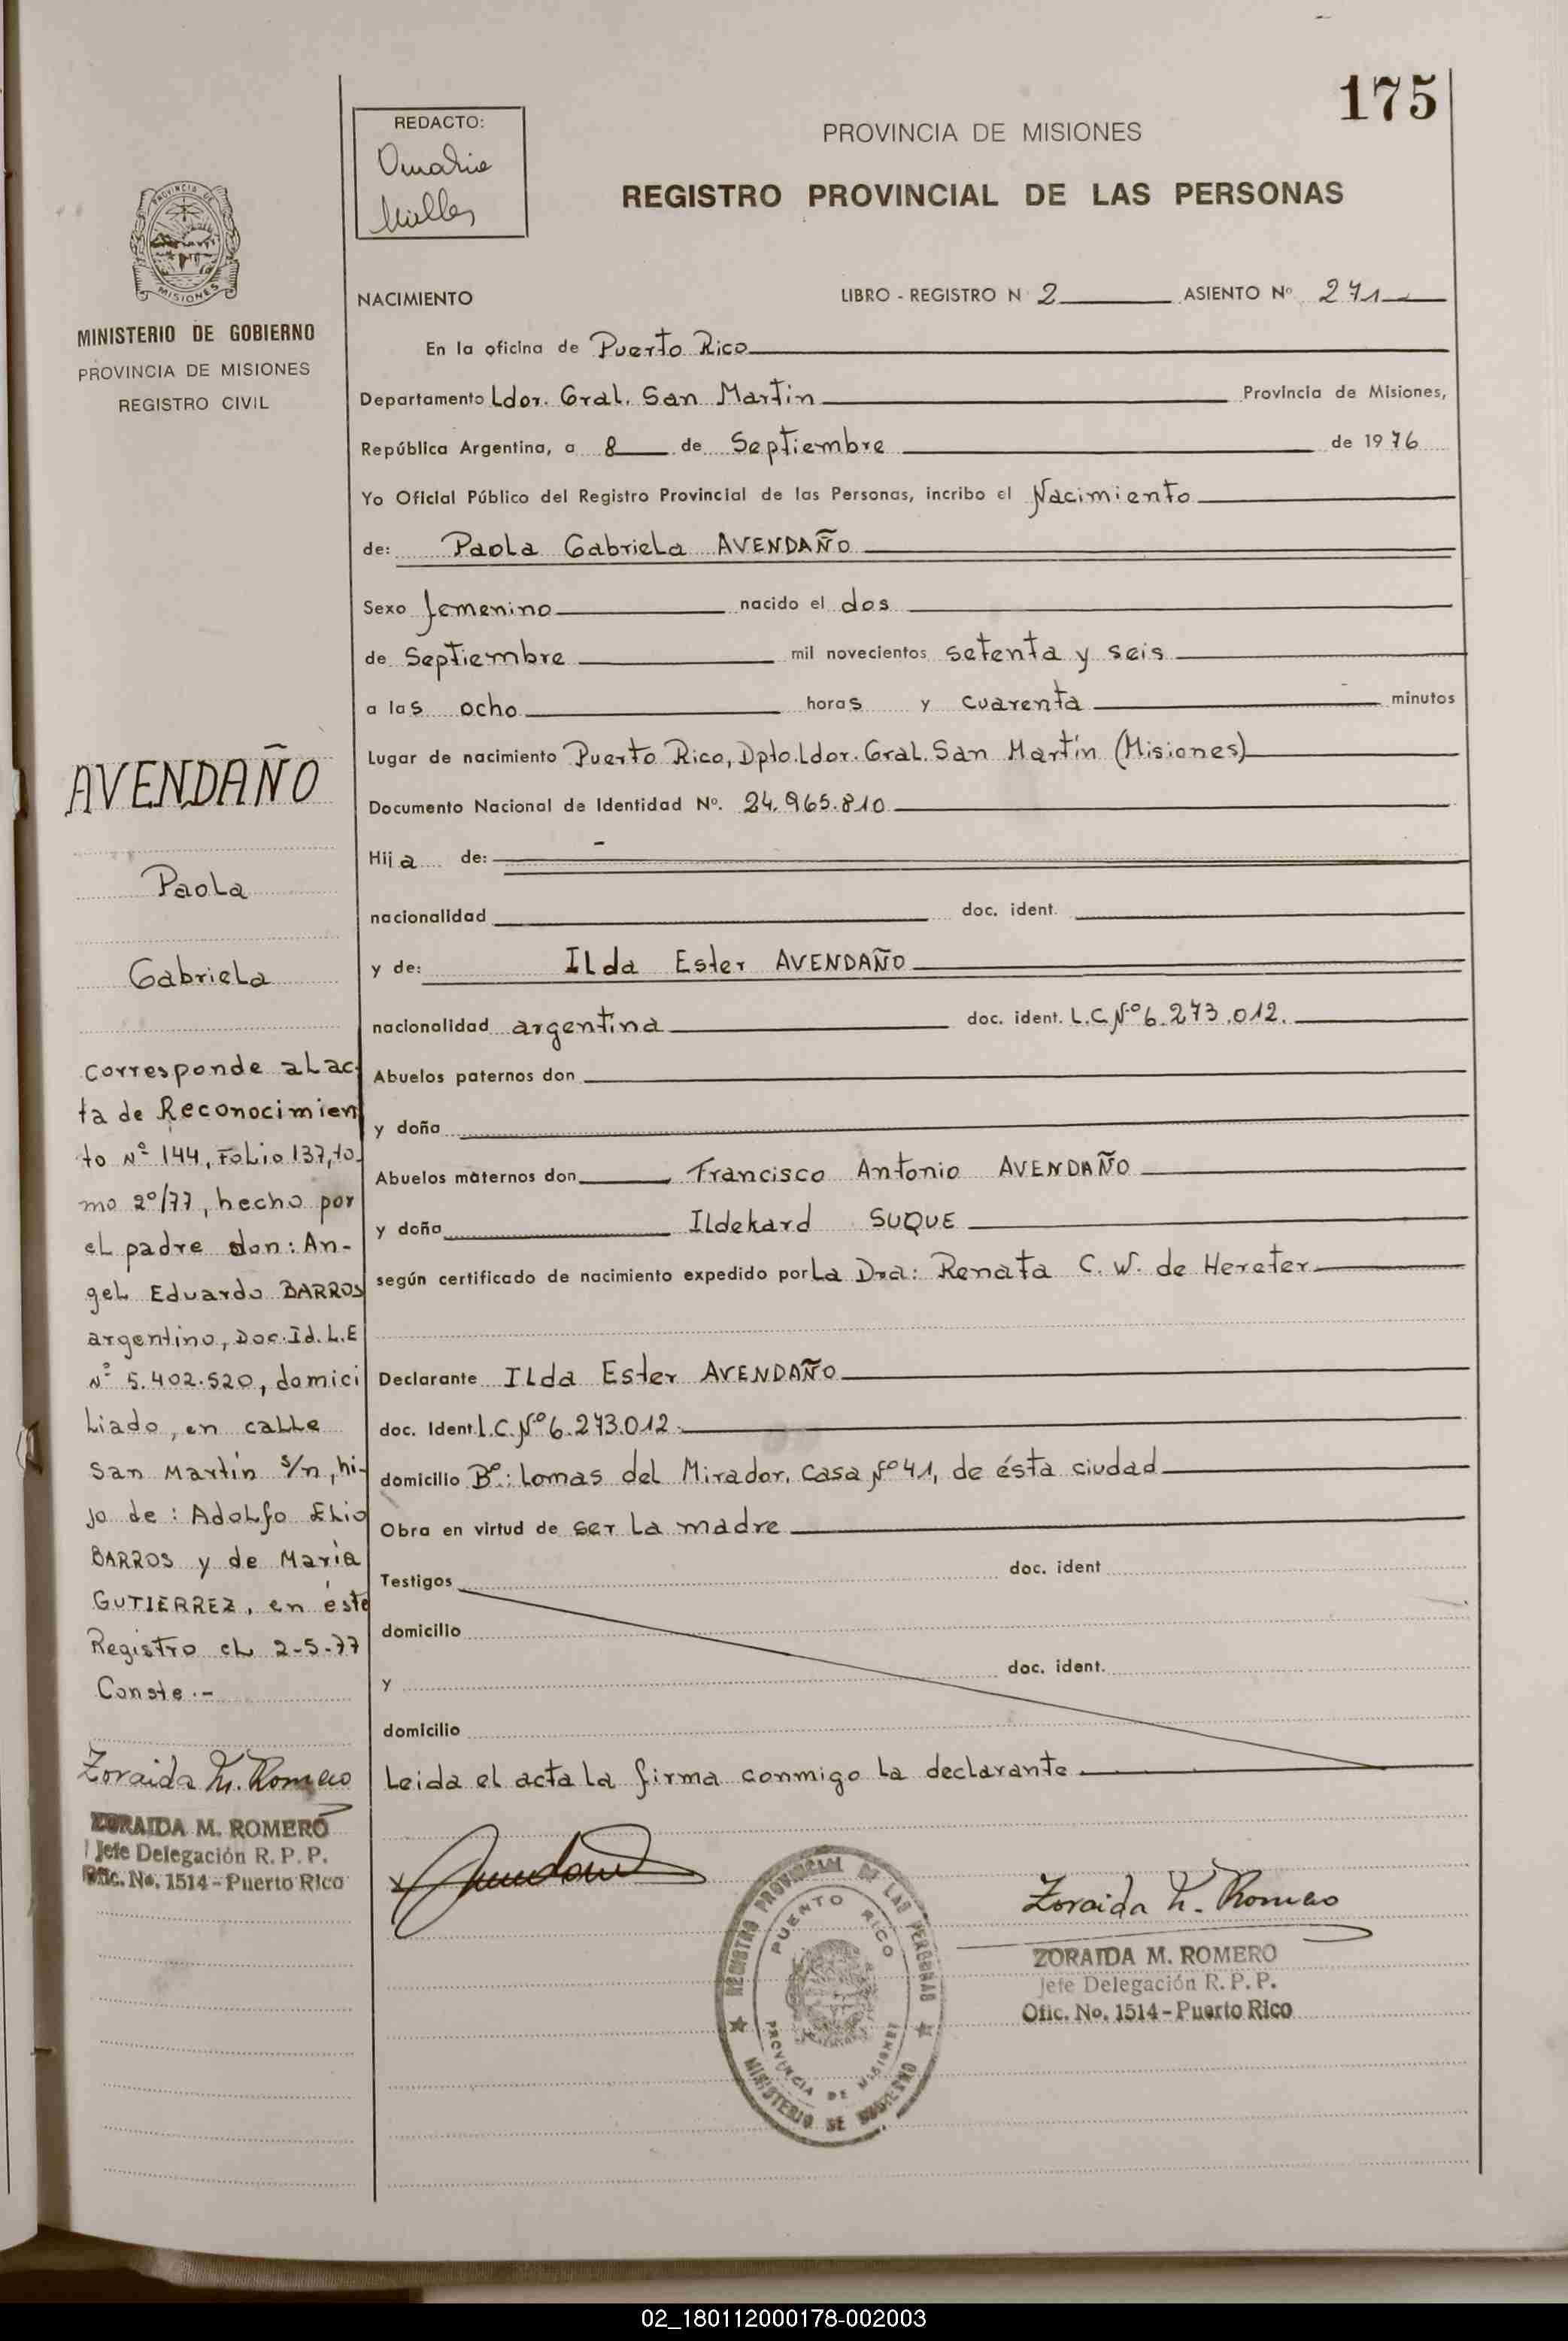 175
REDACTO:
PROVINCIA DE MISIONES
REGISTRO PROVINCIAL DE LAS PERSONAS
PROVINCIA DE
MISIONES
MINISTERIO DE GOBIERNO
PROVINCIA DE MISIONES
REGISTRO CIVIL
AVENDAÑO
Paola
Gabriela
corresponde al ac-
ta de Reconocimien
to Nº 144, Folio 137, to-
mo 2º/77, hecho por
el padre don: An-
gel Eduardo BARROS
argentino, Doc. Id. L.E
Nº 5.402.520, domici
liado, en calle
San Martín s/n, hi-
jo de: Adolfo Elio
BARROS y de María
GUTIERREZ, en éste
Registro el 2-5-77
Conste.-
Zoraida M. Romero
ZORAIDA M. ROMERO
Jefe Delegación R. P. P.
Ofic. No. 1514 - Puerto Rico
NACIMIENTO LIBRO - REGISTRO N 2 ASIENTO Nº 271
En la oficina de Puerto Rico
Departamento Ldor. Gral. San Martin Provincia de Misiones,
República Argentina, a 8 de Septiembre de 1976
Yo Oficial Público del Registro Provincial de las Personas, incribo el Nacimiento
de: Paola Gabriela AVENDAÑO
Sexo femenino nacido el dos
de Septiembre mil novecientos setenta y seis
a las ocho horas y cuarenta minutos
Lugar de nacimiento Puerto Rico, Dpto. Ldor. Gral. San Martín (Misiones)
Documento Nacional de Identidad Nº. 24.965.810
Hija de:
nacionalidad doc. ident.
y de: Ilda Ester AVENDAÑO
nacionalidad argentina doc. ident. L.C.Nº 6.273.012.
Abuelos paternos don
y doña
Abuelos maternos don Francisco Antonio AVENDAÑO
y doña Ildekard SUQUE
según certificado de nacimiento expedido por La Dra: Renata C. W. de Hereter
Declarante Ilda Ester AVENDAÑO
doc. Ident L.C.Nº 6.273.012.
domicilio Bº: Lomas del Mirador, Casa Nº 41, de ésta ciudad
Obra en virtud de ser la madre
Testigos doc. ident
domicilio
y doc. ident.
domicilio
Leida el acta la firma conmigo la declarante
REGISTRO PROVINCIAL DE LAS PERSONAS
PUERTO RICO
PROVINCIA DE MISIONES
MINISTERIO DE GOBIERNO
Zoraida M. Romero
ZORAIDA M. ROMERO
Jefe Delegación R. P. P.
Ofic. No. 1514 - Puerto Rico
02_180112000178-002003